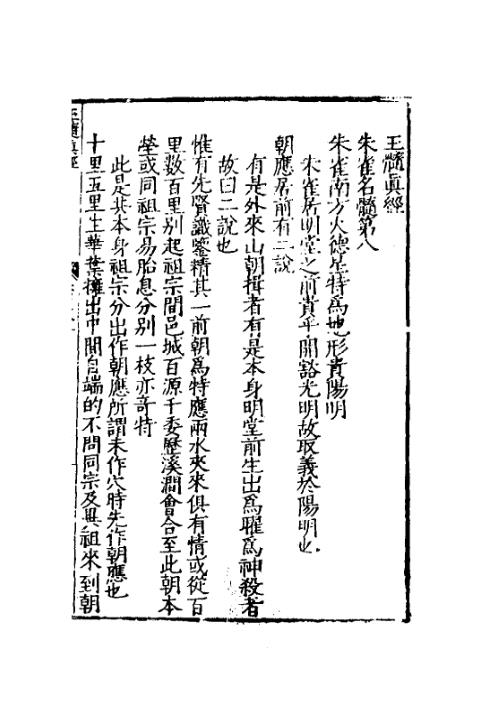 玉髓眞經
朱雀名髓第八
朱雀南方火德星特爲地形貴陽明
朱雀居明堂之前貴乎開豁光明故取義於陽明也
朝應居前有二說
有是外來山朝揖者有是本身明堂前生出爲曜爲神殺者
故曰二說也
惟有先賢識鑒精其一前朝爲特應兩水夾來俱有情或從百
里數百里别起祖宗間邑城百源千委歷溪澗會合至此朝本
塋或同祖宗易胎息分别一枝亦竒特
此是其本身祖宗分出作朝應所謂未作穴時先作朝應也
十里五里生華葉擁出中間自端的不問同宗及異祖來到朝
玉髓眞經